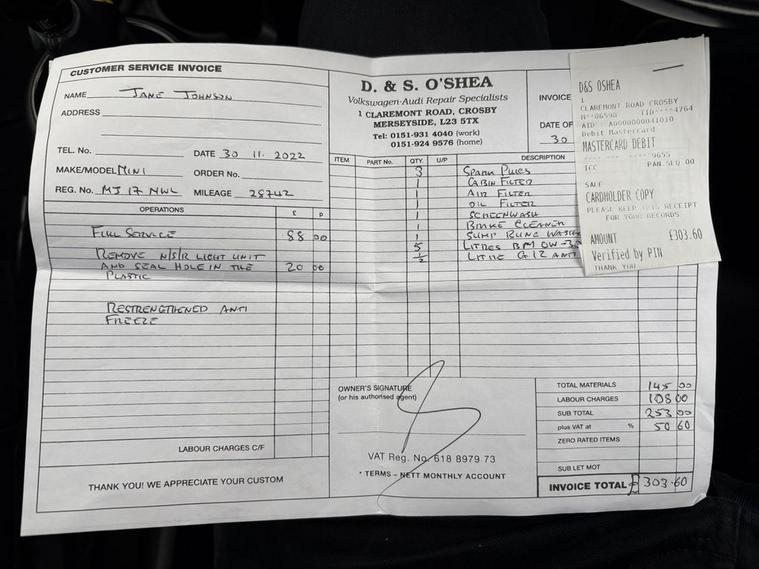 CUSTOMER SERVICE INVOICE
NAME JANE JOHNSON
ADDRESS
TEL. No. DATE 30 11. 2022
MAKE/MODEL MINI ORDER No.
REG. No. MJ 17 NWL MILEAGE 28742
OPERATIONS £ P
FULL SERVICE 88 00
REMOVE N/S/R LIGHT UNIT
AND SEAL HOLE IN THE 20 00
PLASTIC
RESTRENGTHENED ANTI
FREEZE
LABOUR CHARGES C/F
THANK YOU! WE APPRECIATE YOUR CUSTOM
D. & S. O'SHEA
Volkswagen-Audi Repair Specialists
1 CLAREMONT ROAD, CROSBY
MERSEYSIDE, L23 5TX
Tel: 0151-931 4040 (work)
0151-924 9576 (home)
INVOICE
DATE OF
30
ITEM PART No. QTY. U/P DESCRIPTION
3 SPARK PLUGS
1 CABIN FILTER
1 AIR FILTER
1 OIL FILTER
1 SCREENWASH
1 BRAKE CLEANER
1 SUMP
5 LITRES 0W-30
½ LITRE G12 ANTI
OWNER'S SIGNATURE
(or his authorised agent)
VAT Reg. No. 618 8979 73
* TERMS – NETT MONTHLY ACCOUNT
TOTAL MATERIALS 145 00
LABOUR CHARGES 108 00
SUB TOTAL 253 00
plus VAT at % 50 60
ZERO RATED ITEMS
SUB LET MOT
INVOICE TOTAL £ 303.60
D&S OSHEA
1
CLAREMONT ROAD CROSBY
M**06590 TID****4764
AID : A0000000041010
Debit Mastercard
MASTERCARD DEBIT
**** **** **** 9655
ICC PAN.SEQ 00
SALE
CARDHOLDER COPY
PLEASE KEEP THIS RECEIPT
FOR YOUR RECORDS
AMOUNT £303.60
Verified by PIN
THANK YOU